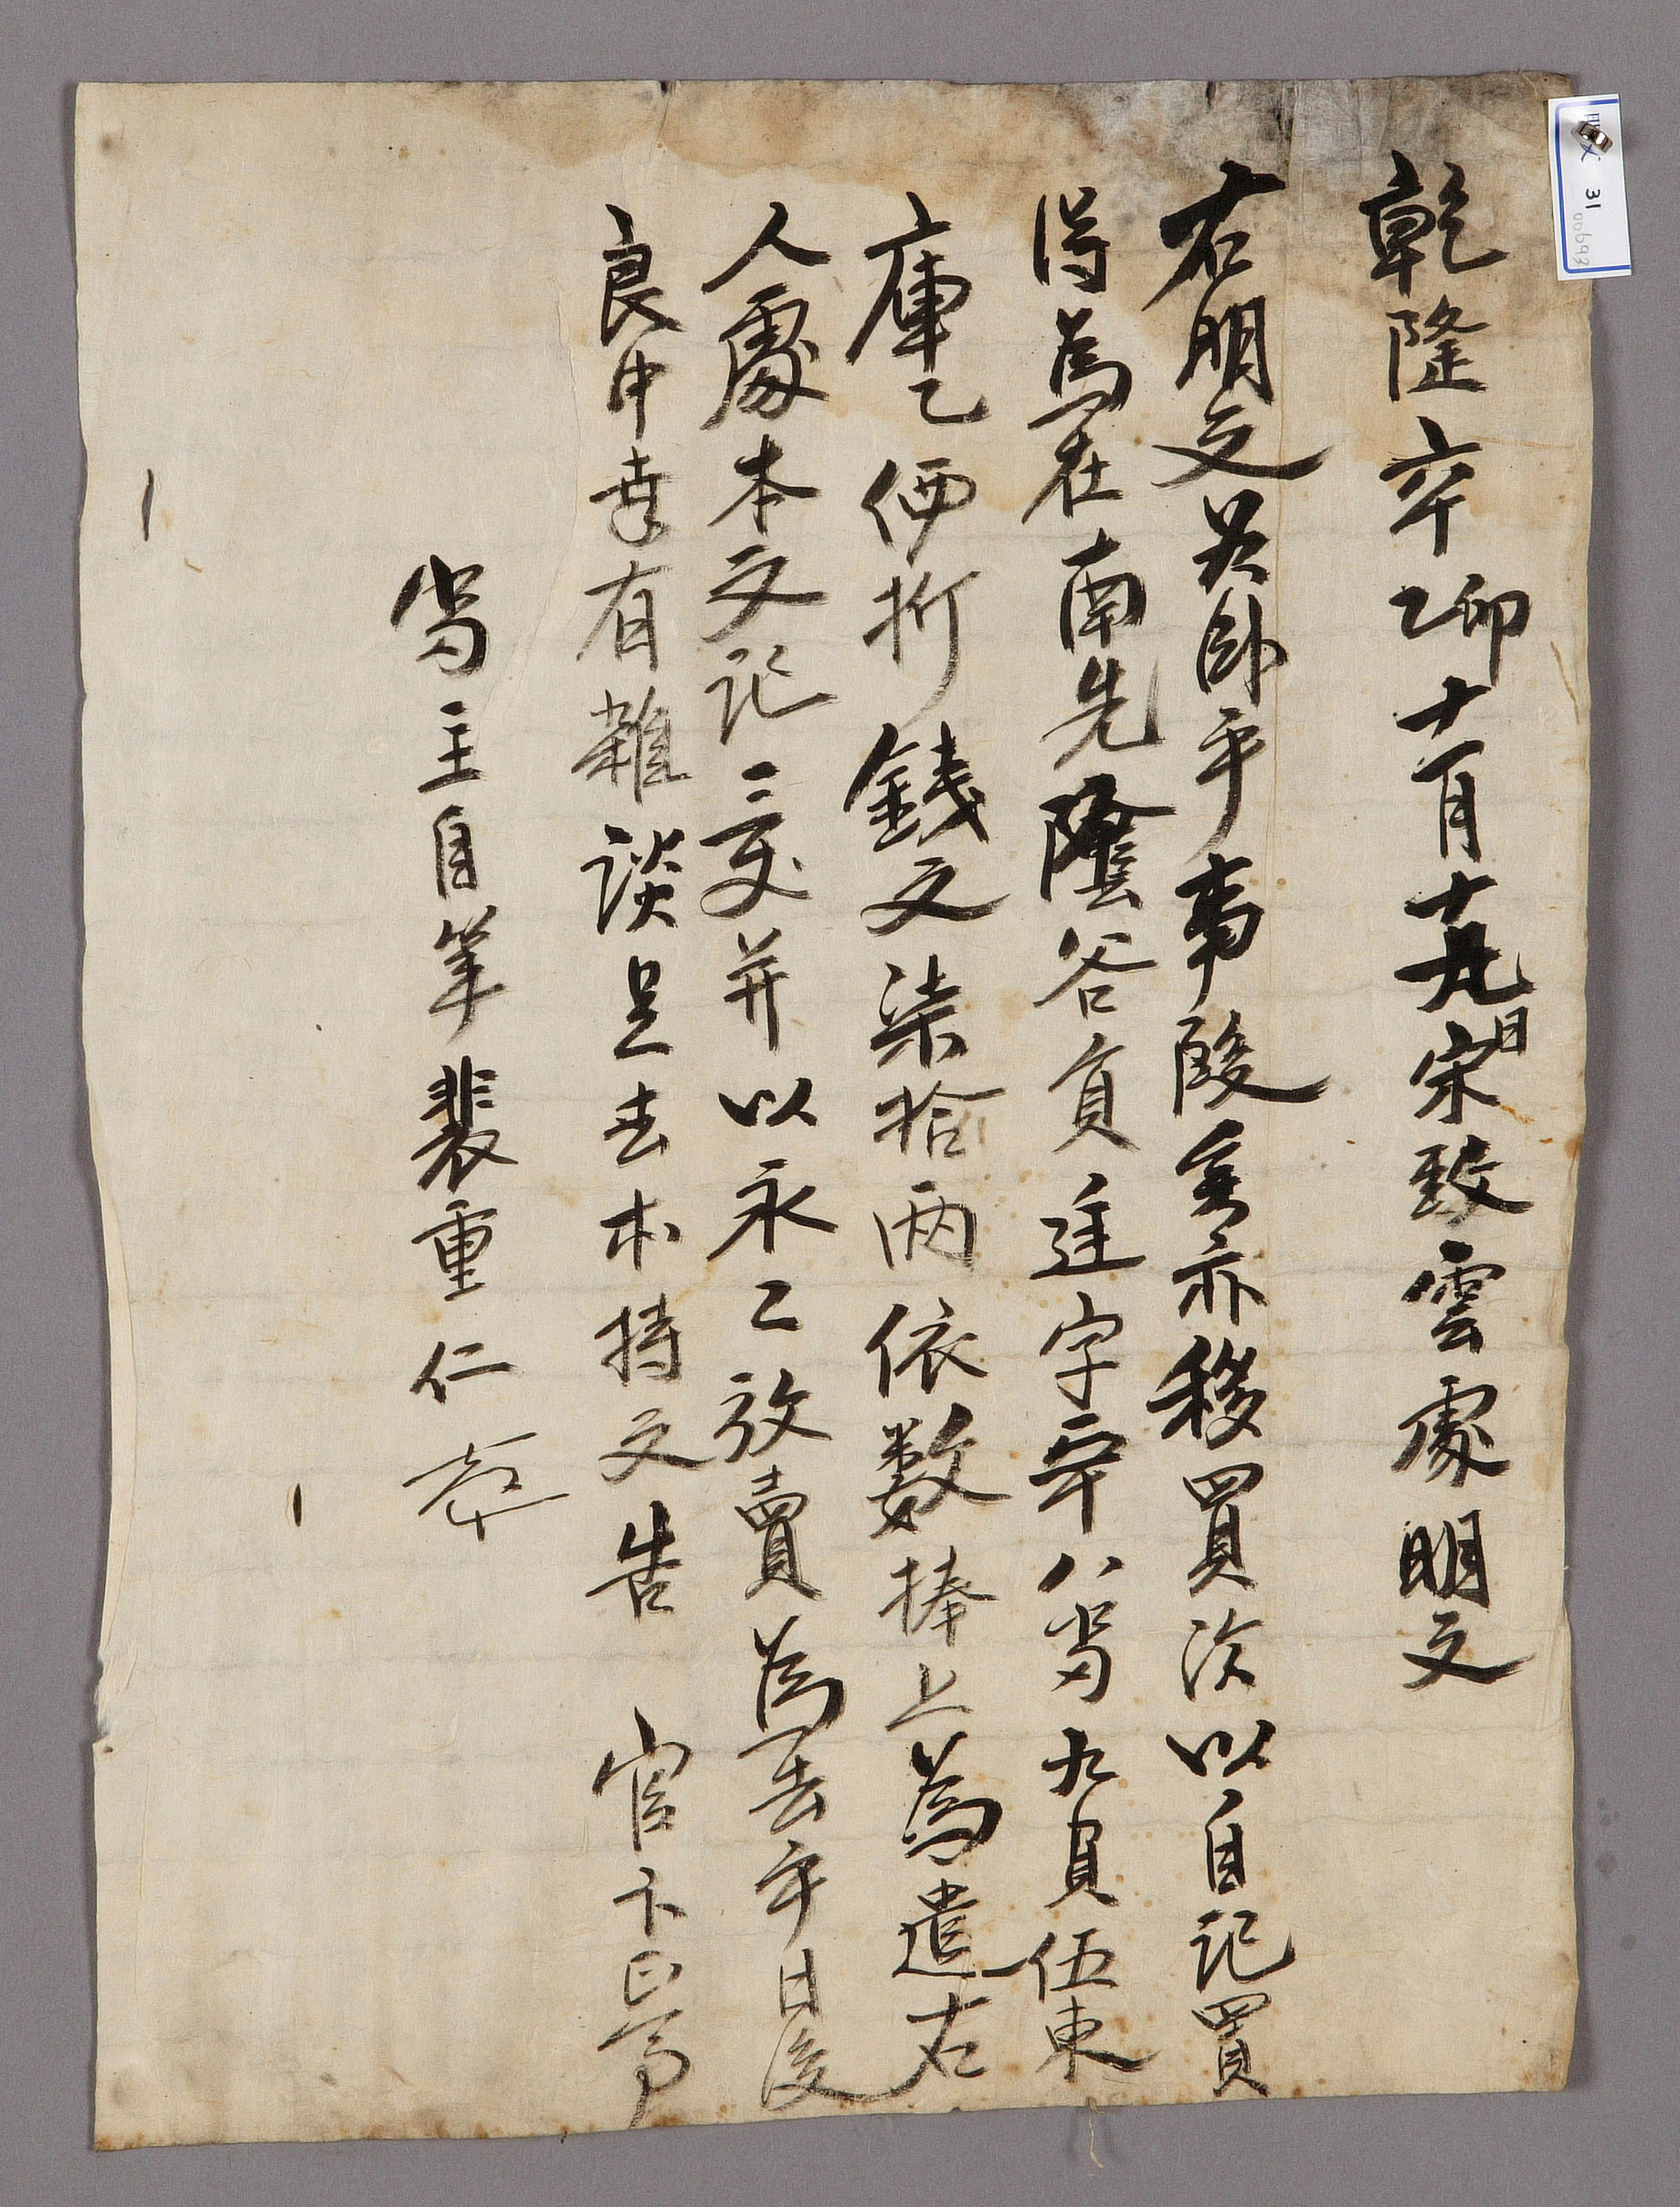 乾隆六十乙卯十一月十九日宋致雲處明文
右明文爲臥乎事段矣亦移買次以自記買
得爲在南先蔭谷員字四十八畓九負伍束
庫乙価折錢文柒拾兩依數捧上爲遣右
人處本文記并以永〻放賣爲去乎日後
良中幸有雜談是去等持文告 官卞正事
畓主自筆裵重仁
31